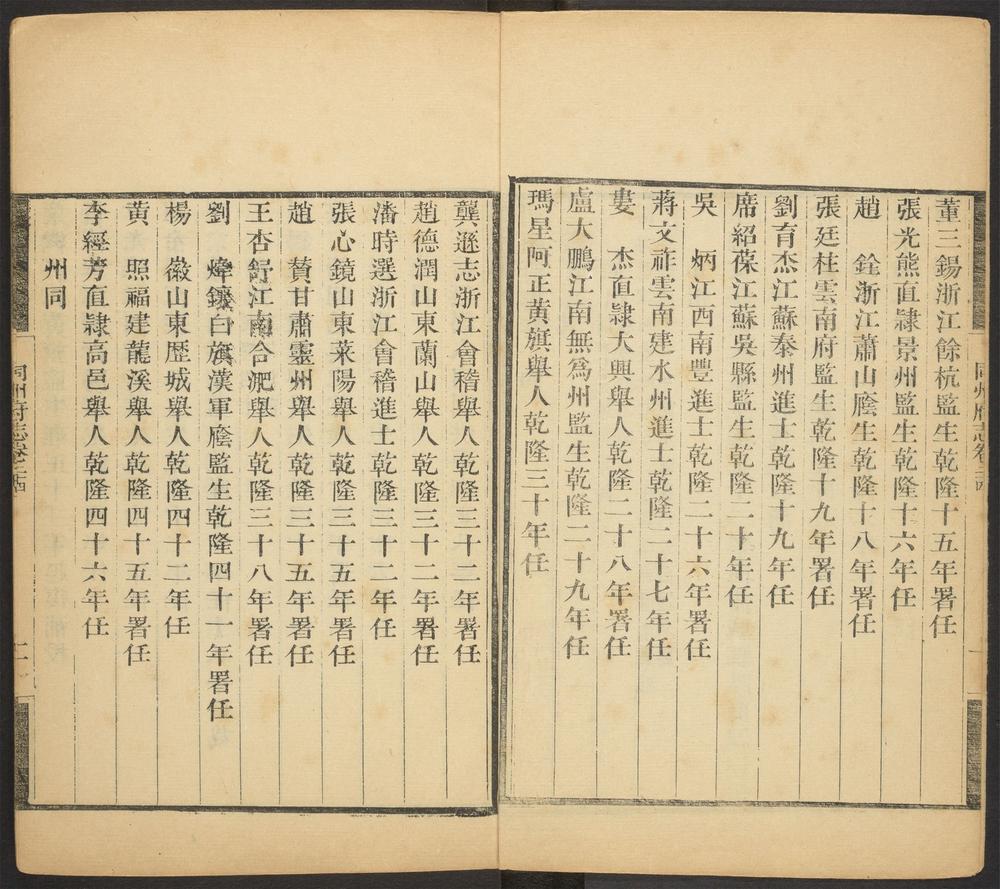 董三錫浙江餘杭監生乾隆十五年署任
張光熊直隸景州監生乾隆十六年任
趙　銓浙江蕭山廕生乾隆十八年署任
張廷柱雲南府監生乾隆十九年署任
劉育杰江蘇泰州進士乾隆十九年任
席紹葆江蘇吳縣監生乾隆二十年任
吳　炳江西南豐進士乾隆二十六年署任
蔣文祚雲南建水州進士乾隆二十七年任
婁　杰直隸大興舉人乾隆二十八年署任
盧大鵬江南無爲州監生乾隆二十九年任
瑪星阿正黃旗舉人乾隆三十年任
同州府志卷二十四
龔遜志浙江會稽舉人乾隆三十二年署任
趙德潤山東蘭山舉人乾隆三十二年署任
潘時選浙江會稽進士乾隆三十二年任
張心鏡山東萊陽舉人乾隆三十五年署任
趙　贊甘肅靈州舉人乾隆三十五年署任
王杏舒江南合淝舉人乾隆三十八年署任
劉　煒鑲白旗漢軍廕監生乾隆四十一年署任
楊　徽山東歷城舉人乾隆四十二年任
黃　照福建龍溪舉人乾隆四十五年署任
李經芳直隸高邑舉人乾隆四十六年任
州同
同州府志卷二十四